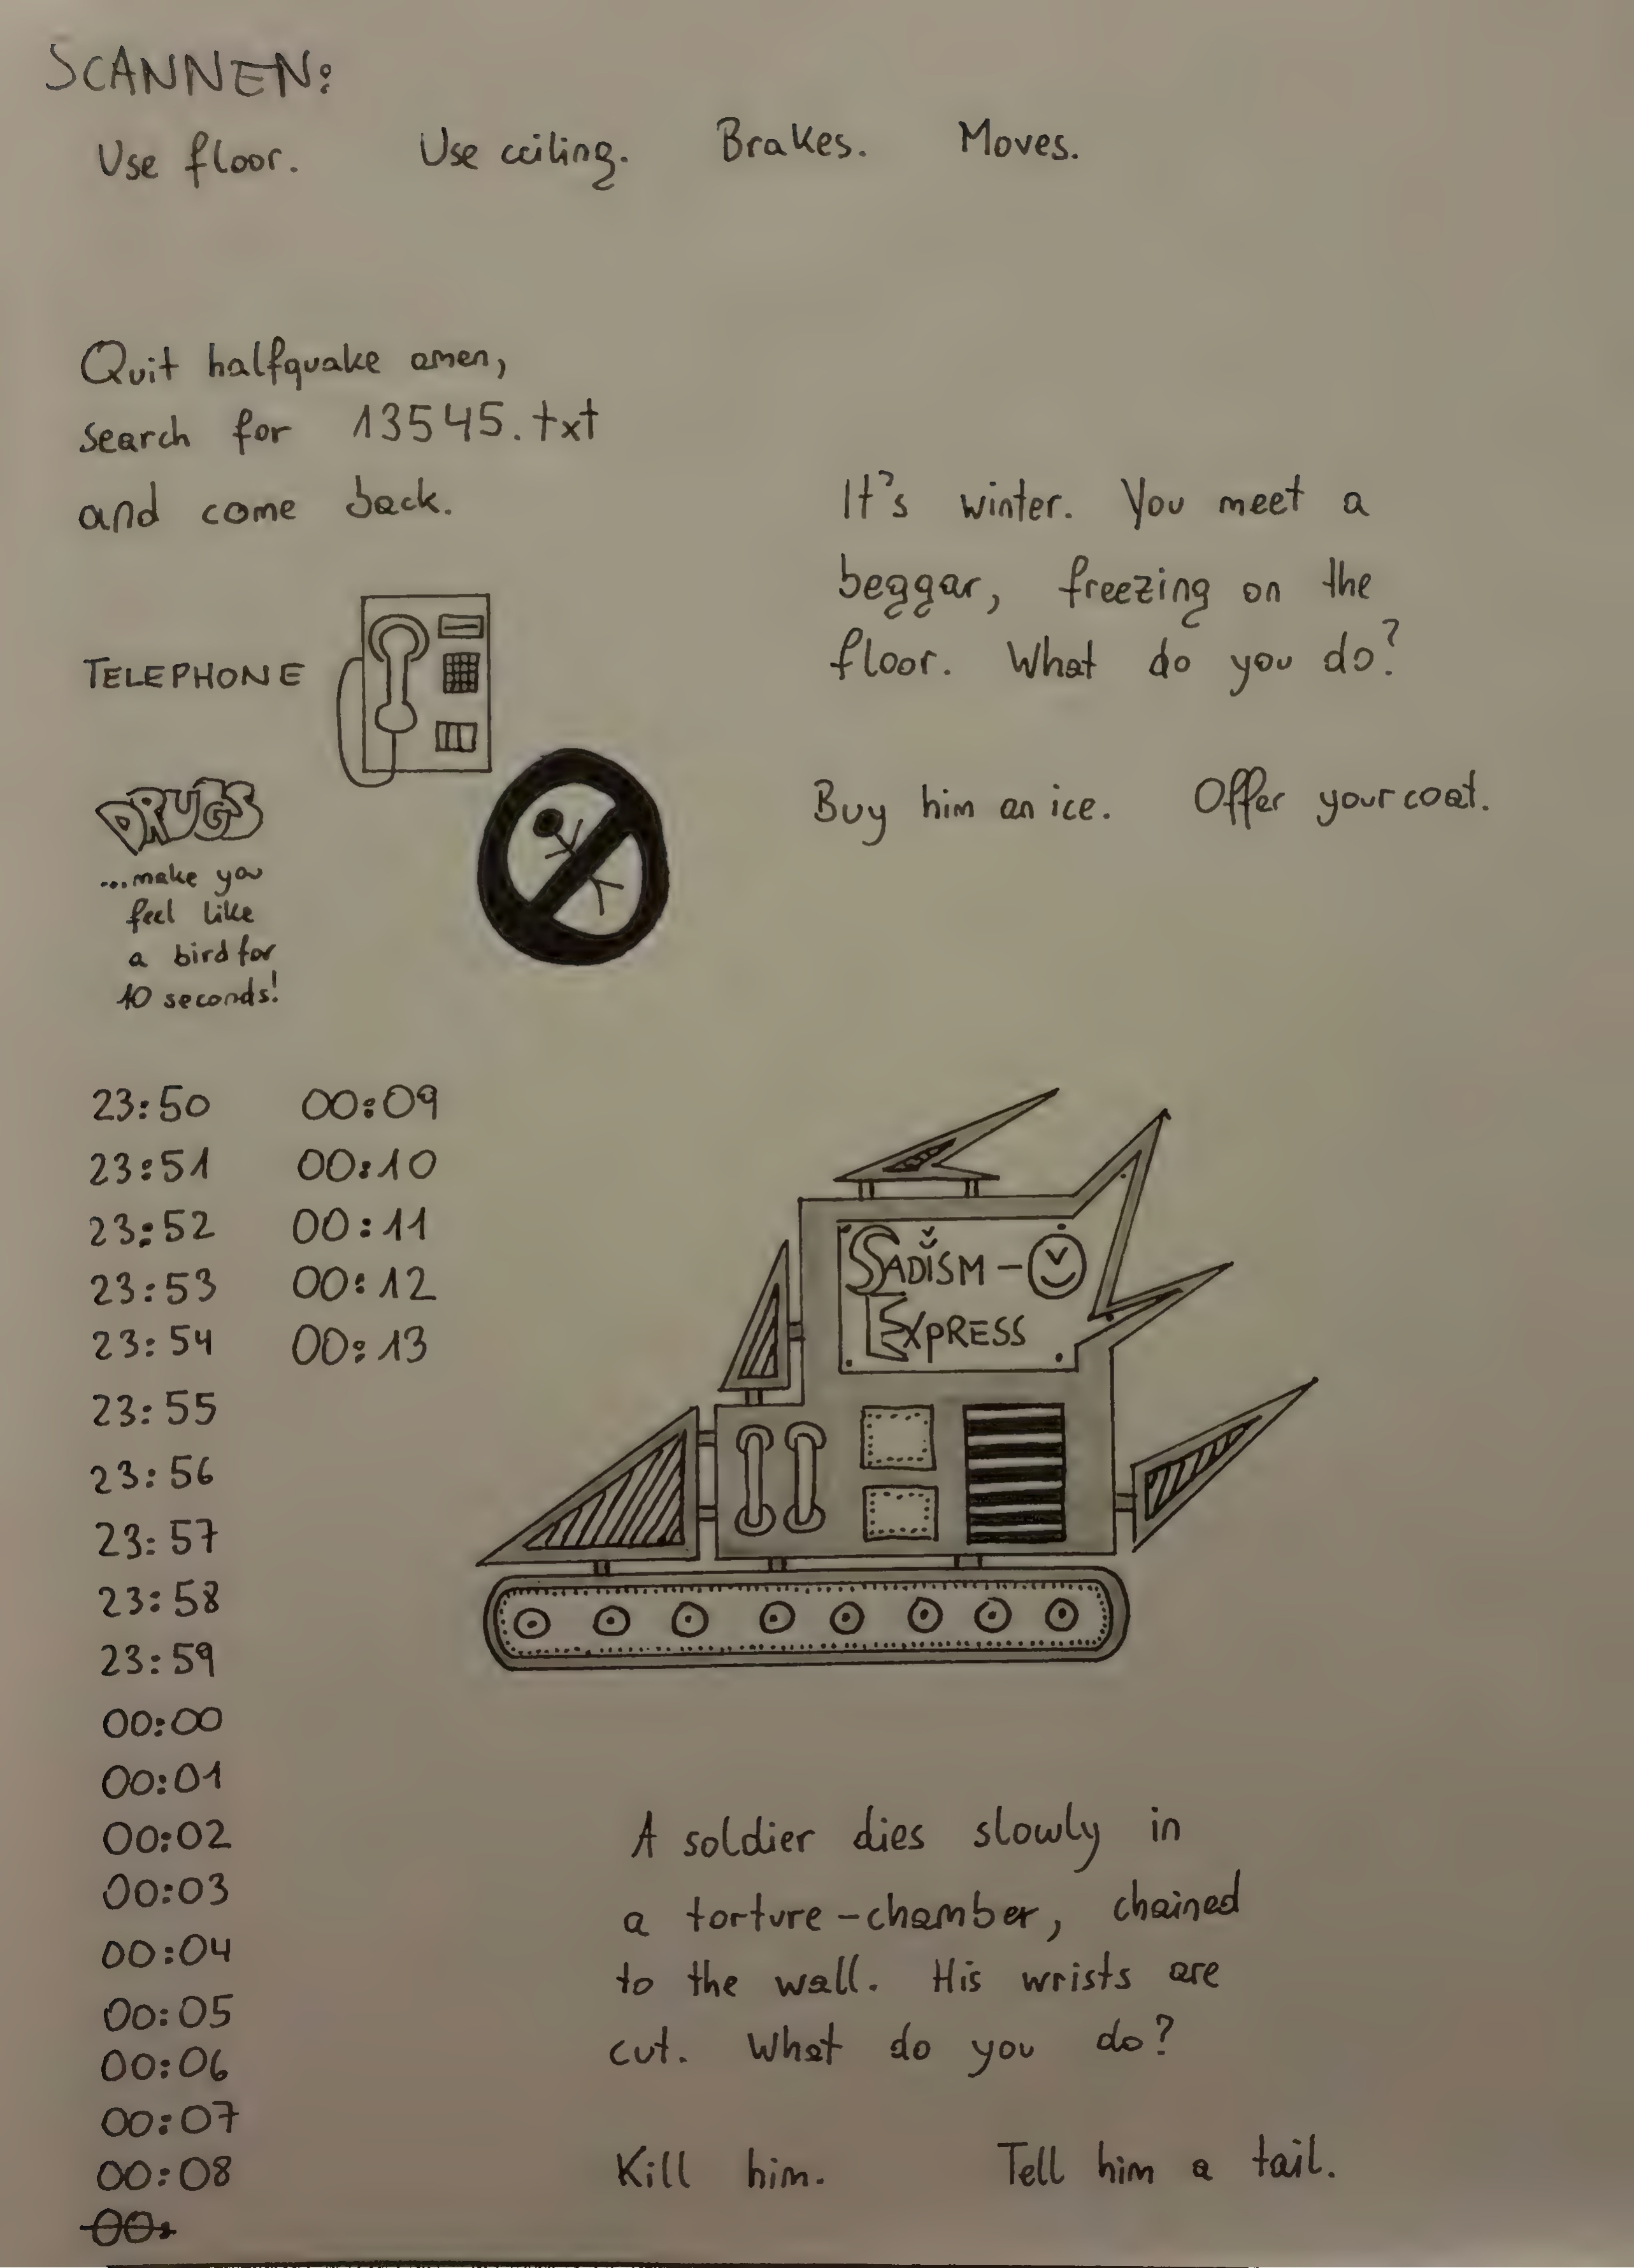 SCANNEN:
Use floor. Use ceiling. Brakes. Moves.
Quit halfquake amen,
search for 13545.txt
and come back.
It's winter. You meet a
beggar, freezing on the
floor. What do you do?
Buy him an ice. Offer your coat.
TELEPHONE
DRUGS
...make you
feel like
a bird for
10 seconds!
23:50 00:09
23:51 00:10
23:52 00:11
23:53 00:12
23:54 00:13
23:55
23:56
23:57
23:58
23:59
00:00
00:01
00:02
00:03
00:04
00:05
00:06
00:07
00:08
00:
SADISM -
EXPRESS
A soldier dies slowly in
a torture-chamber, chained
to the wall. His wrists are
cut. What do you do?
Kill him. Tell him a tail.